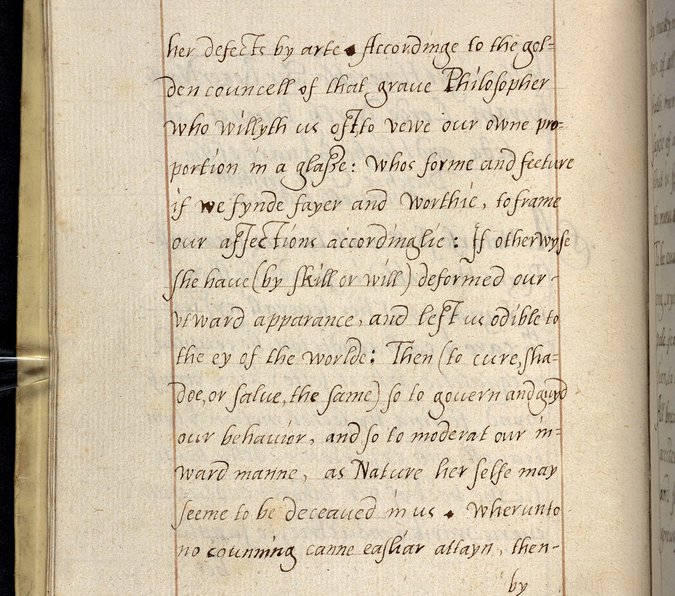 her defects by arte. Accordinge to the gol-
den councell of that grave Philosopher
who willyth us oft to vewe our owne pro-
portion in a glasse: whos forme and feeture
if we fynde fayer and worthie, to frame
our affections accordinglie: If otherwyse
she haue (by skill or will) deformed our
vtward apparance, and left us odible to
the ey of the worlde: Then (to cure, sha-
doe, or salue, the same) so to govern and guyd
our behavior, and so to moderat our in-
ward manne, as Nature her selfe may
seeme to be deceaued in us. wherunto
no counning canne easliar attayn, then-
by